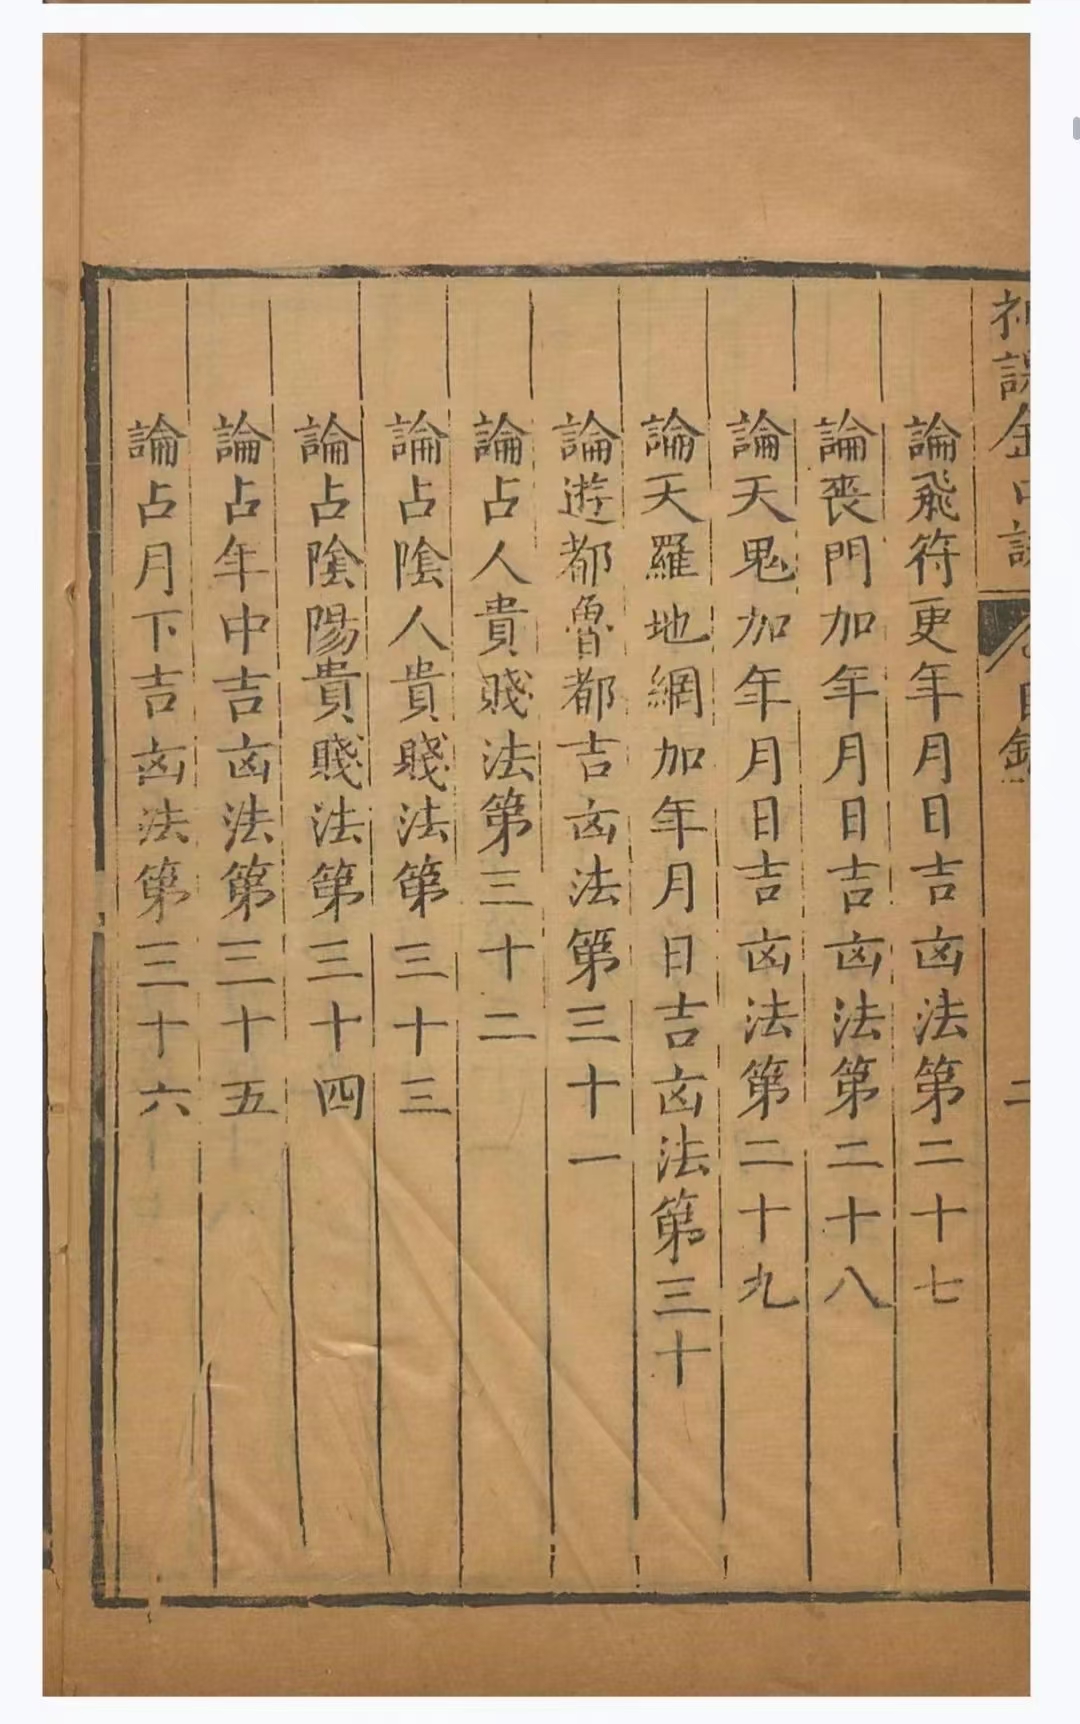 神課金口訣
目錄
二
論飛符更年月日吉凶法第二十七
論喪門加年月日吉凶法第二十八
論天鬼加年月日吉凶法第二十九
論天羅地網加年月日吉凶法第三十
論遊都魯都吉凶法第三十一
論占人貴賤法第三十二
論占陰人貴賤法第三十三
論占陰陽貴賤法第三十四
論占年中吉凶法第三十五
論占月下吉凶法第三十六